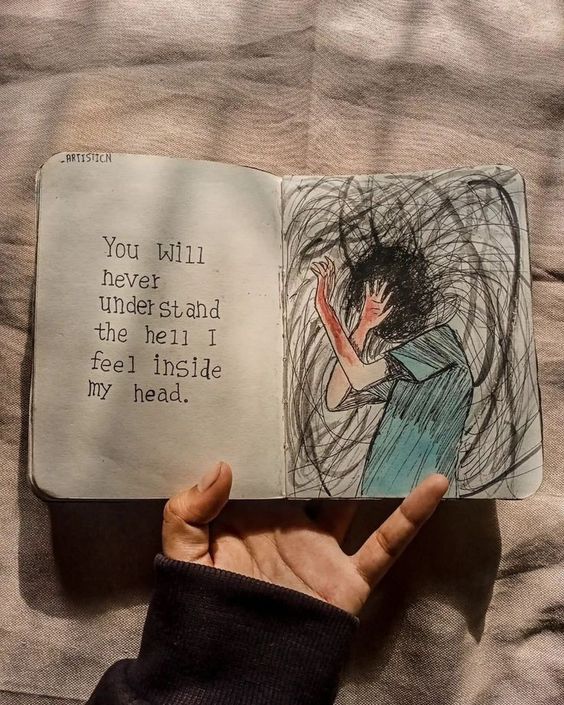 _ARTISTICN
You Will
never
understand
the hell I
feel inside
my head.